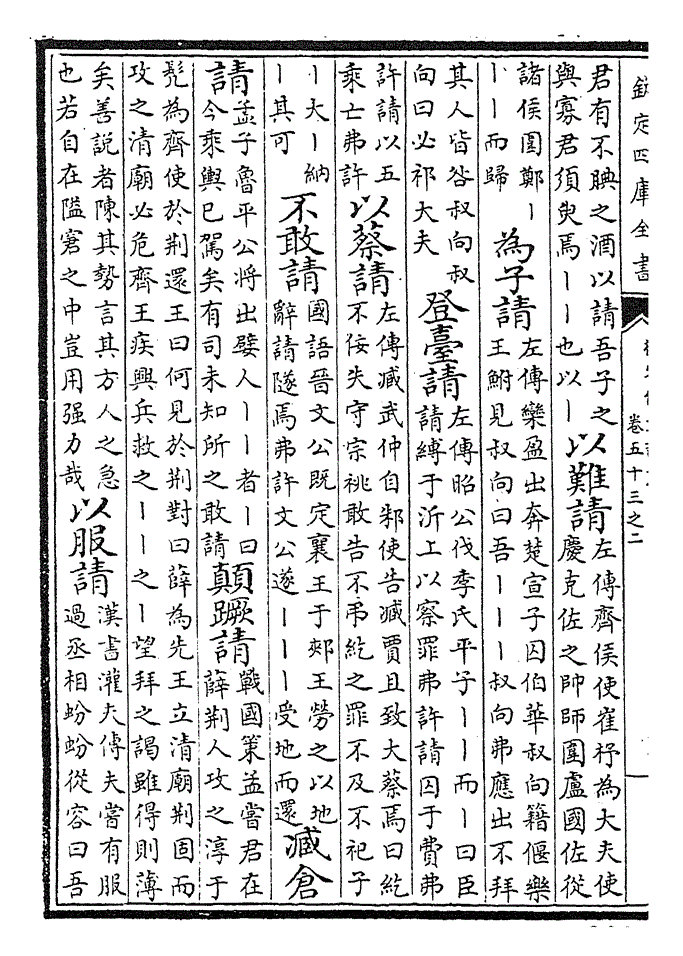 欽定四庫全書
卷五十三之二
君有不腆之酒以請吾子之
與寡君須臾焉丨丨也以丨
以難請
左傳齊侯使崔杼為大夫使
慶克佐之帥師圍盧國佐從
諸侯圍鄭丨
丨丨而歸
為子請
左傳欒盈出奔楚宣子囚伯華叔向籍偃欒
王鮒見叔向曰吾丨丨丨叔向弗應出不拜
其人皆咎叔向叔
向曰必祁大夫
登臺請
左傳昭公伐季氏平子丨丨而丨曰臣
請縛于沂上以察罪弗許請囚于費弗
許請以五
乘亡弗許
以蔡請
左傳臧武仲自邾使告臧賈且致大蔡焉曰紇
不佞失守宗祧敢告不弔紇之罪不及不祀子
丨大丨納
丨其可
不敢請
國語晉文公既定襄王于郟王勞之以地
辭請隧焉弗許文公遂丨丨丨受地而還
臧倉
請
孟子魯平公將出嬖人丨丨者丨曰
今乘輿已駕矣有司未知所之敢請
顛蹶請
戰國策孟嘗君在
薛荆人攻之淳于
髠為齊使於荆還王曰何見於荆對曰薛為先王立清廟荆固而
攻之清廟必危齊王疾興兵救之丨丨之丨望拜之謁雖得則薄
矣善說者陳其勢言其方人之急
也若自在隘窘之中豈用强力哉
以服請
漢書灌夫傳夫嘗有服
過丞相蚡蚡從容曰吾